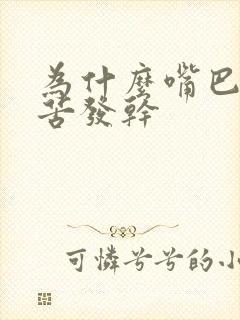 為什麼嘴巴
苦發幹
可憐兮兮的小